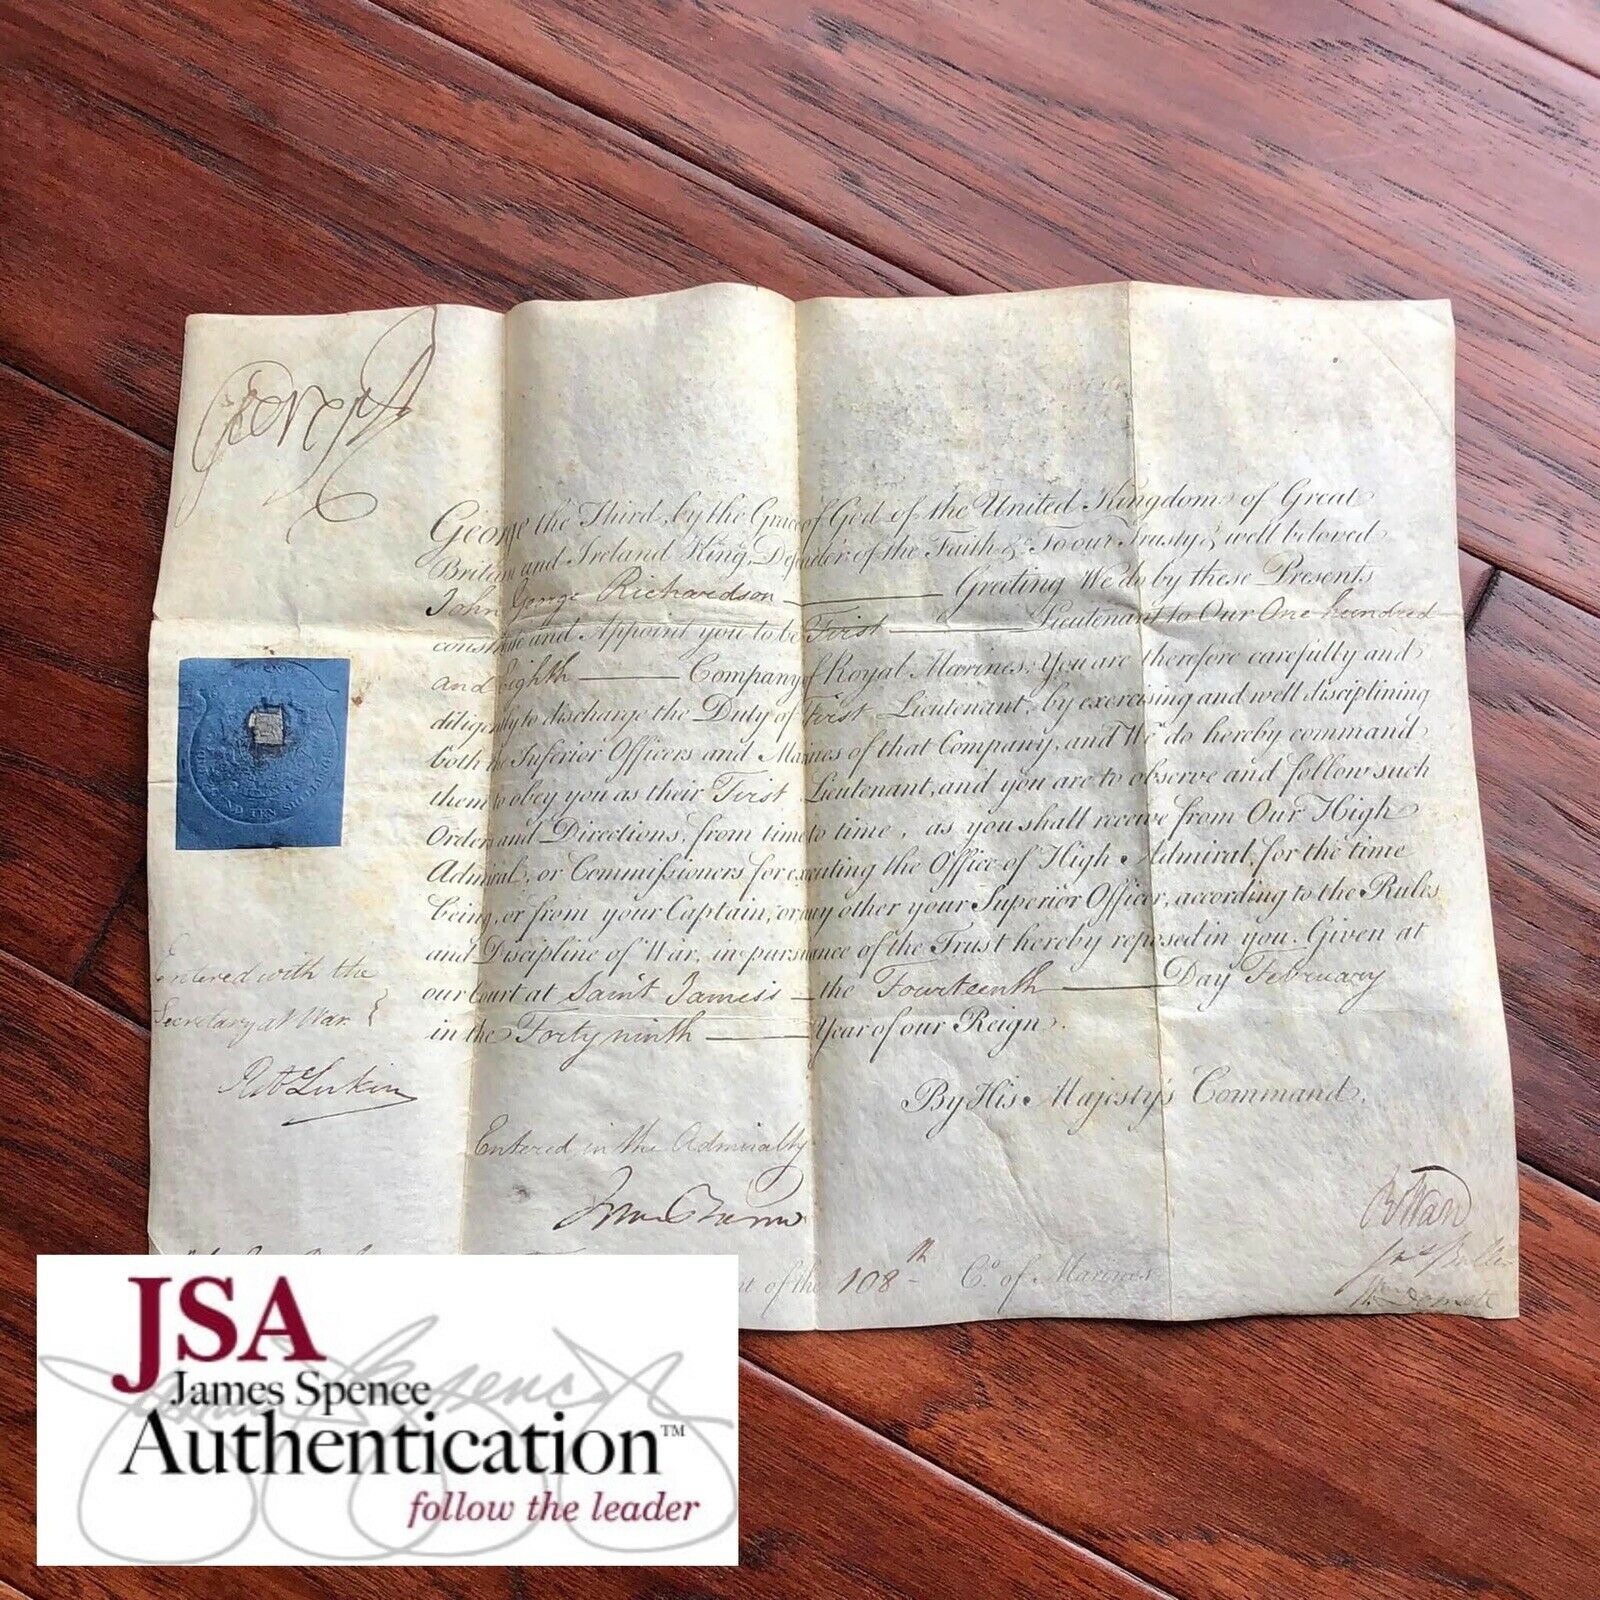 George R
George the Third, by the Grace of God of the United Kingdom of Great
Britain and Ireland King, Defender of the Faith &c To our Trusty & well beloved
John George Richardson Greeting We do by these Presents
constitute and Appoint you to be First Lieutenant to Our One hundred
and Eighth Company of Royal Marines: You are therefore carefully and
diligently to discharge the Duty of First Lieutenant, by exercising and well disciplining
both the Inferior Officers and Marines of that Company, and We do hereby command
them to obey you as their First Lieutenant, and you are to observe and follow such
Orders and Directions, from time to time, as you shall receive from Our High
Admiral, or Commissioners for executing the Office of High Admiral, for the time
being, or from your Captain, or any other your Superior Officer, according to the Rules
and Discipline of War, in pursuance of the Trust hereby reposed in you. Given at
our Court at Saint James's the Fourteenth Day February
in the Forty ninth Year of our Reign.
By His Majesty's Command.
AND TEN SHILLINGS
Entered with the
Secretary at War
Robt Lukin
Entered in the Admiralty
R Ward
Jas Buller
Wm Domett
of the 108th Co. of Marines
JSA
James Spence
Authentication™
follow the leader